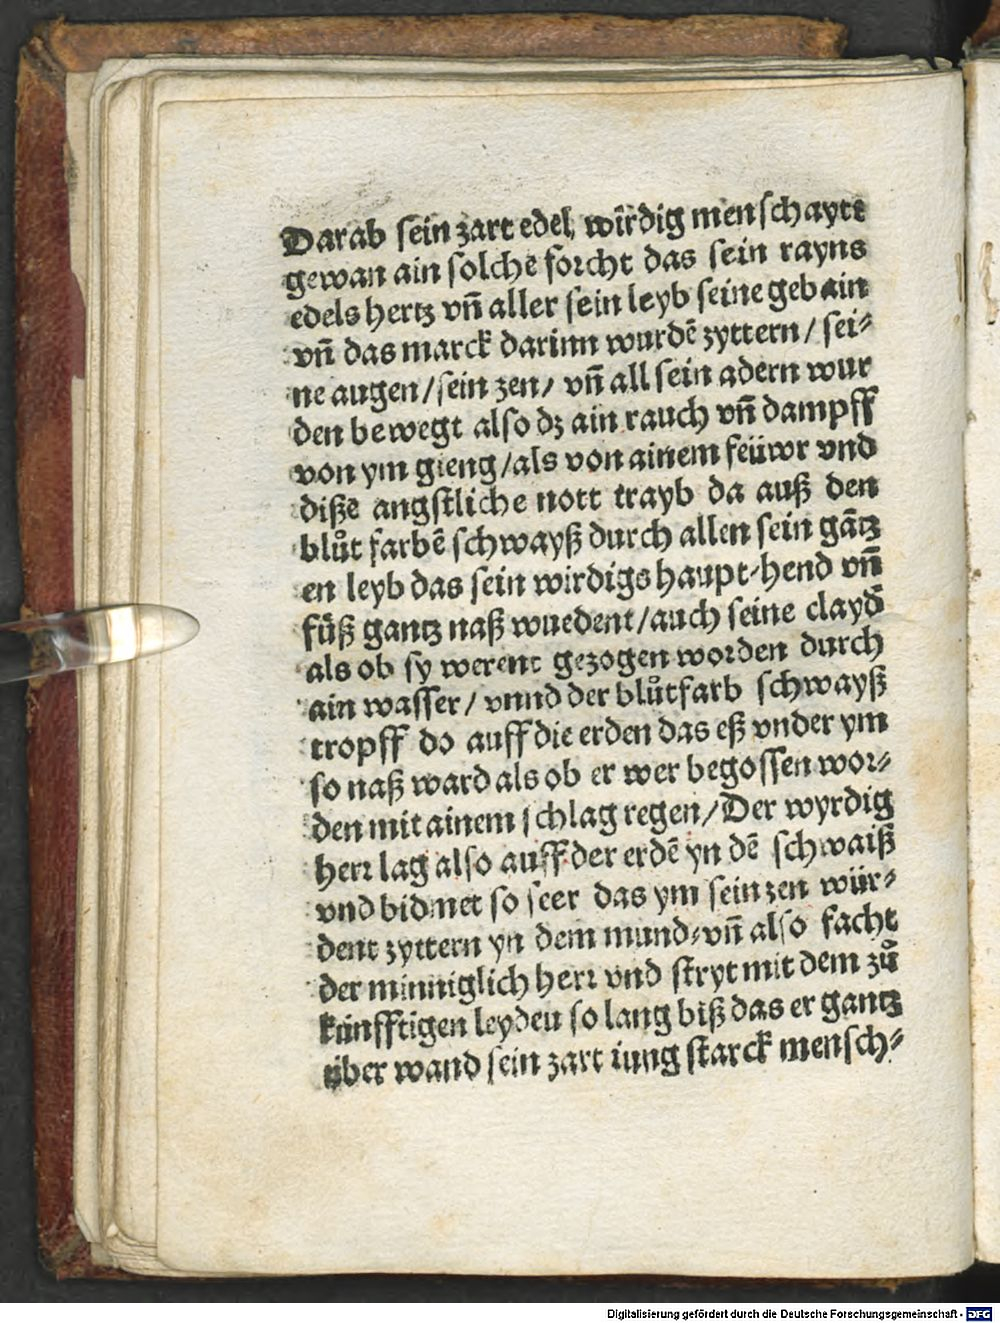 Darab sein zart edel, wirdig menschayte
gewan ain solchē forcht das sein rayns
edels hertz vñ aller sein leyb seine gebain
vñ das marck darinn wurdē zyttern / sei⸗
ne augen / sein zen / vñ all sein adern wur
den bewegt also dz ain rauch vñ dampff
von ym gieng / als von ainem feüwr vnd
dißē angstliche nott trayb da auß den
blůt farbē schwayß durch allen sein gātz
en leyb das sein wirdigs haupt⸗hend vñ
füß gantz naß wuedent / auch seine clayd̄
als ob sy werent gezogen worden durch
ain wasser / vnnd der blůtfarb schwayß
tropff do auff die erden das eß vnder ym
so naß ward als ob er wer begossen wor⸗
den mit ainem schlag regen / Der wyrdig
herr lag also auff der erdē yn dē schwaiß
vnd bidmet so seer das ym sein zen wür⸗
dent zyttern yn dem mund⸗vñ also facht
der minniglich herr vnd stryt mit dem zů
künfftigen leyden so lang biß das er gantz
über wand sein zart iung starck mensch⸗
Digitalisierung gefördert durch die Deutsche Forschungsgemeinschaft - DFG